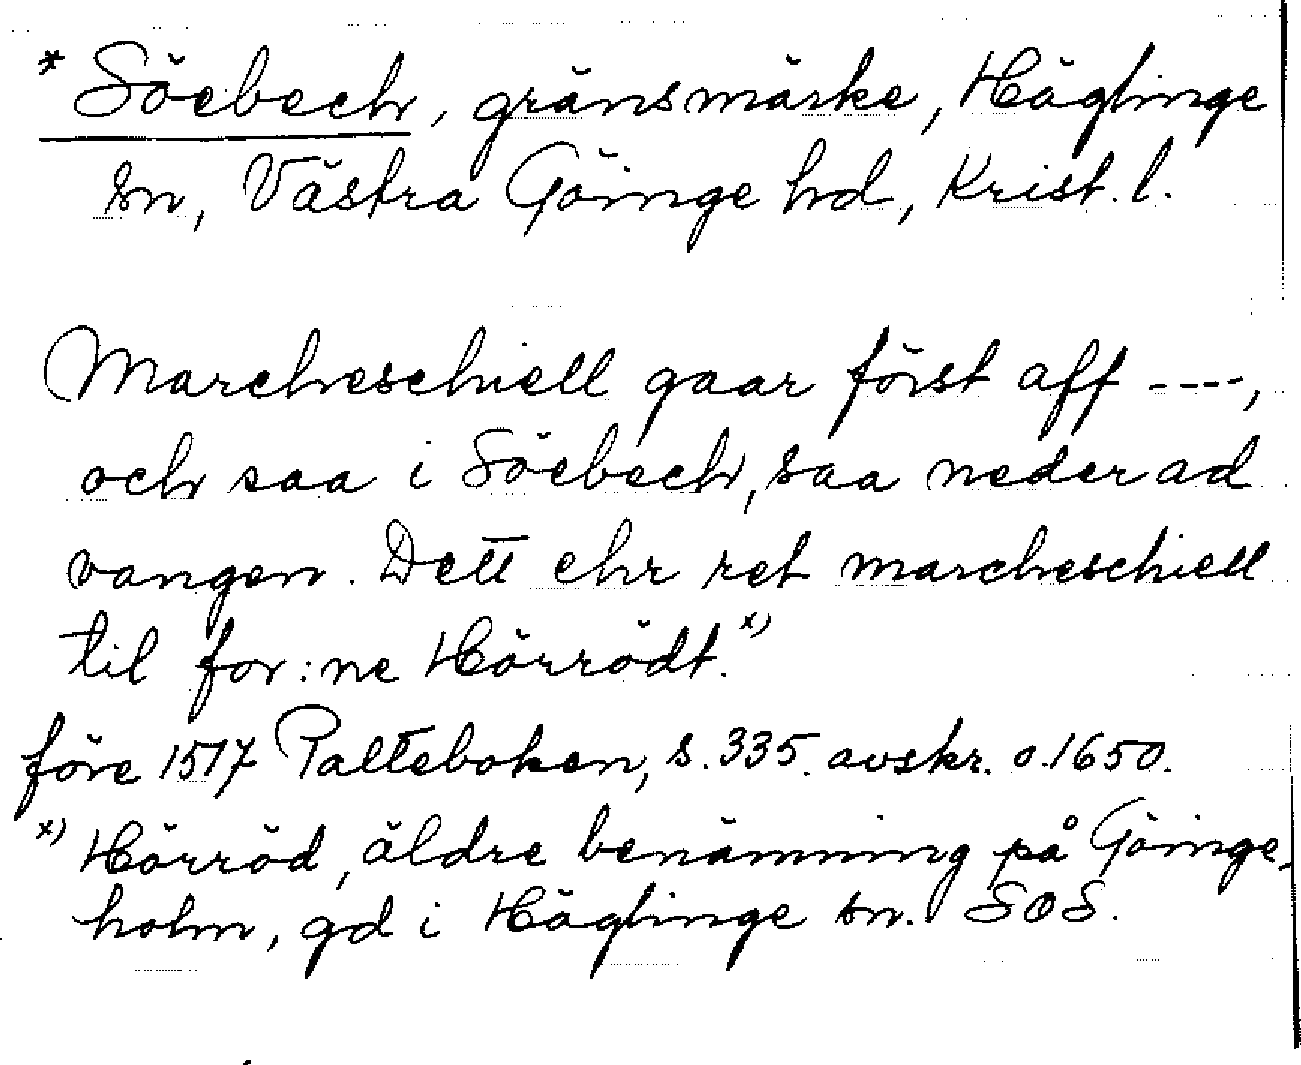 * Söebech, gränsmärke, Häglinge
sn, Västra Göinge hd, Krist. l.
Marcheschiell gaar först aff ----,
och saa i Söebech, saa neder ad
vangen. Dett ehr ret marcheschiell
til for:ne Hörrödt.x)
före 1517 Palteboken, s. 335. avskr. o. 1650.
x) Hörröd, äldre benämning på Göinge-
holm, gd i Häglinge sn. SOS.